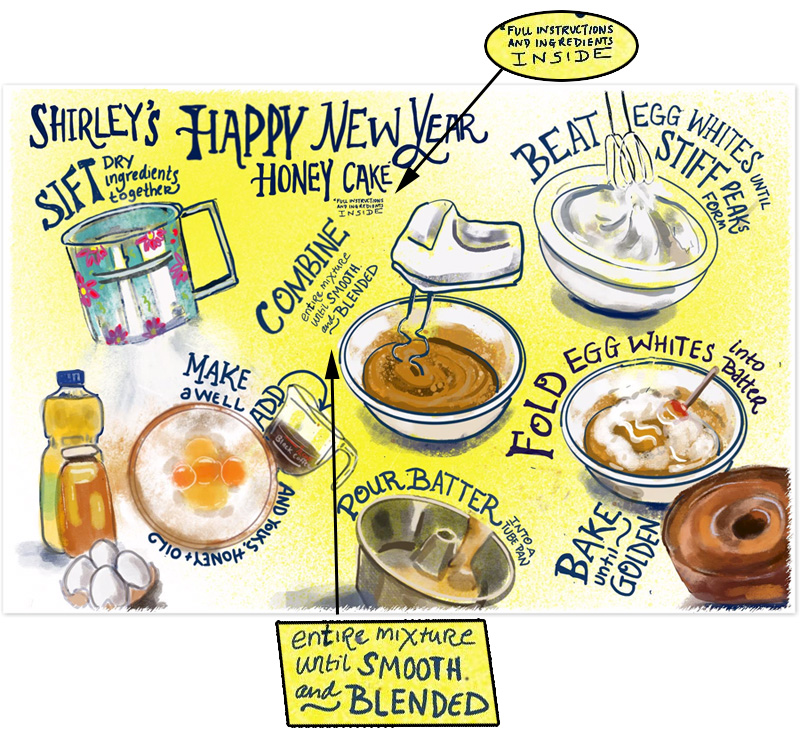 "FULL INSTRUCTIONS
AND INGREDIENTS
INSIDE
SHIRLEY'S HAPPY NEW YEAR
HONEY CAKE
"FULL INSTRUCTIONS
AND INGREDIENTS
INSIDE
SIFT DRY
ingredients
together
MAKE
a WELL
ADD
Black Coffee
AND YOLKS, HONEY + OIL
COMBINE
entire mixture
until SMOOTH.
and BLENDED
BEAT EGG WHITES UNTIL
STIFF PEAKS
FORM
FOLD EGG WHITES into
Batter
POUR BATTER INTO A
TUBE PAN
BAKE
until
GOLDEN
entire mixture
until SMOOTH.
and BLENDED